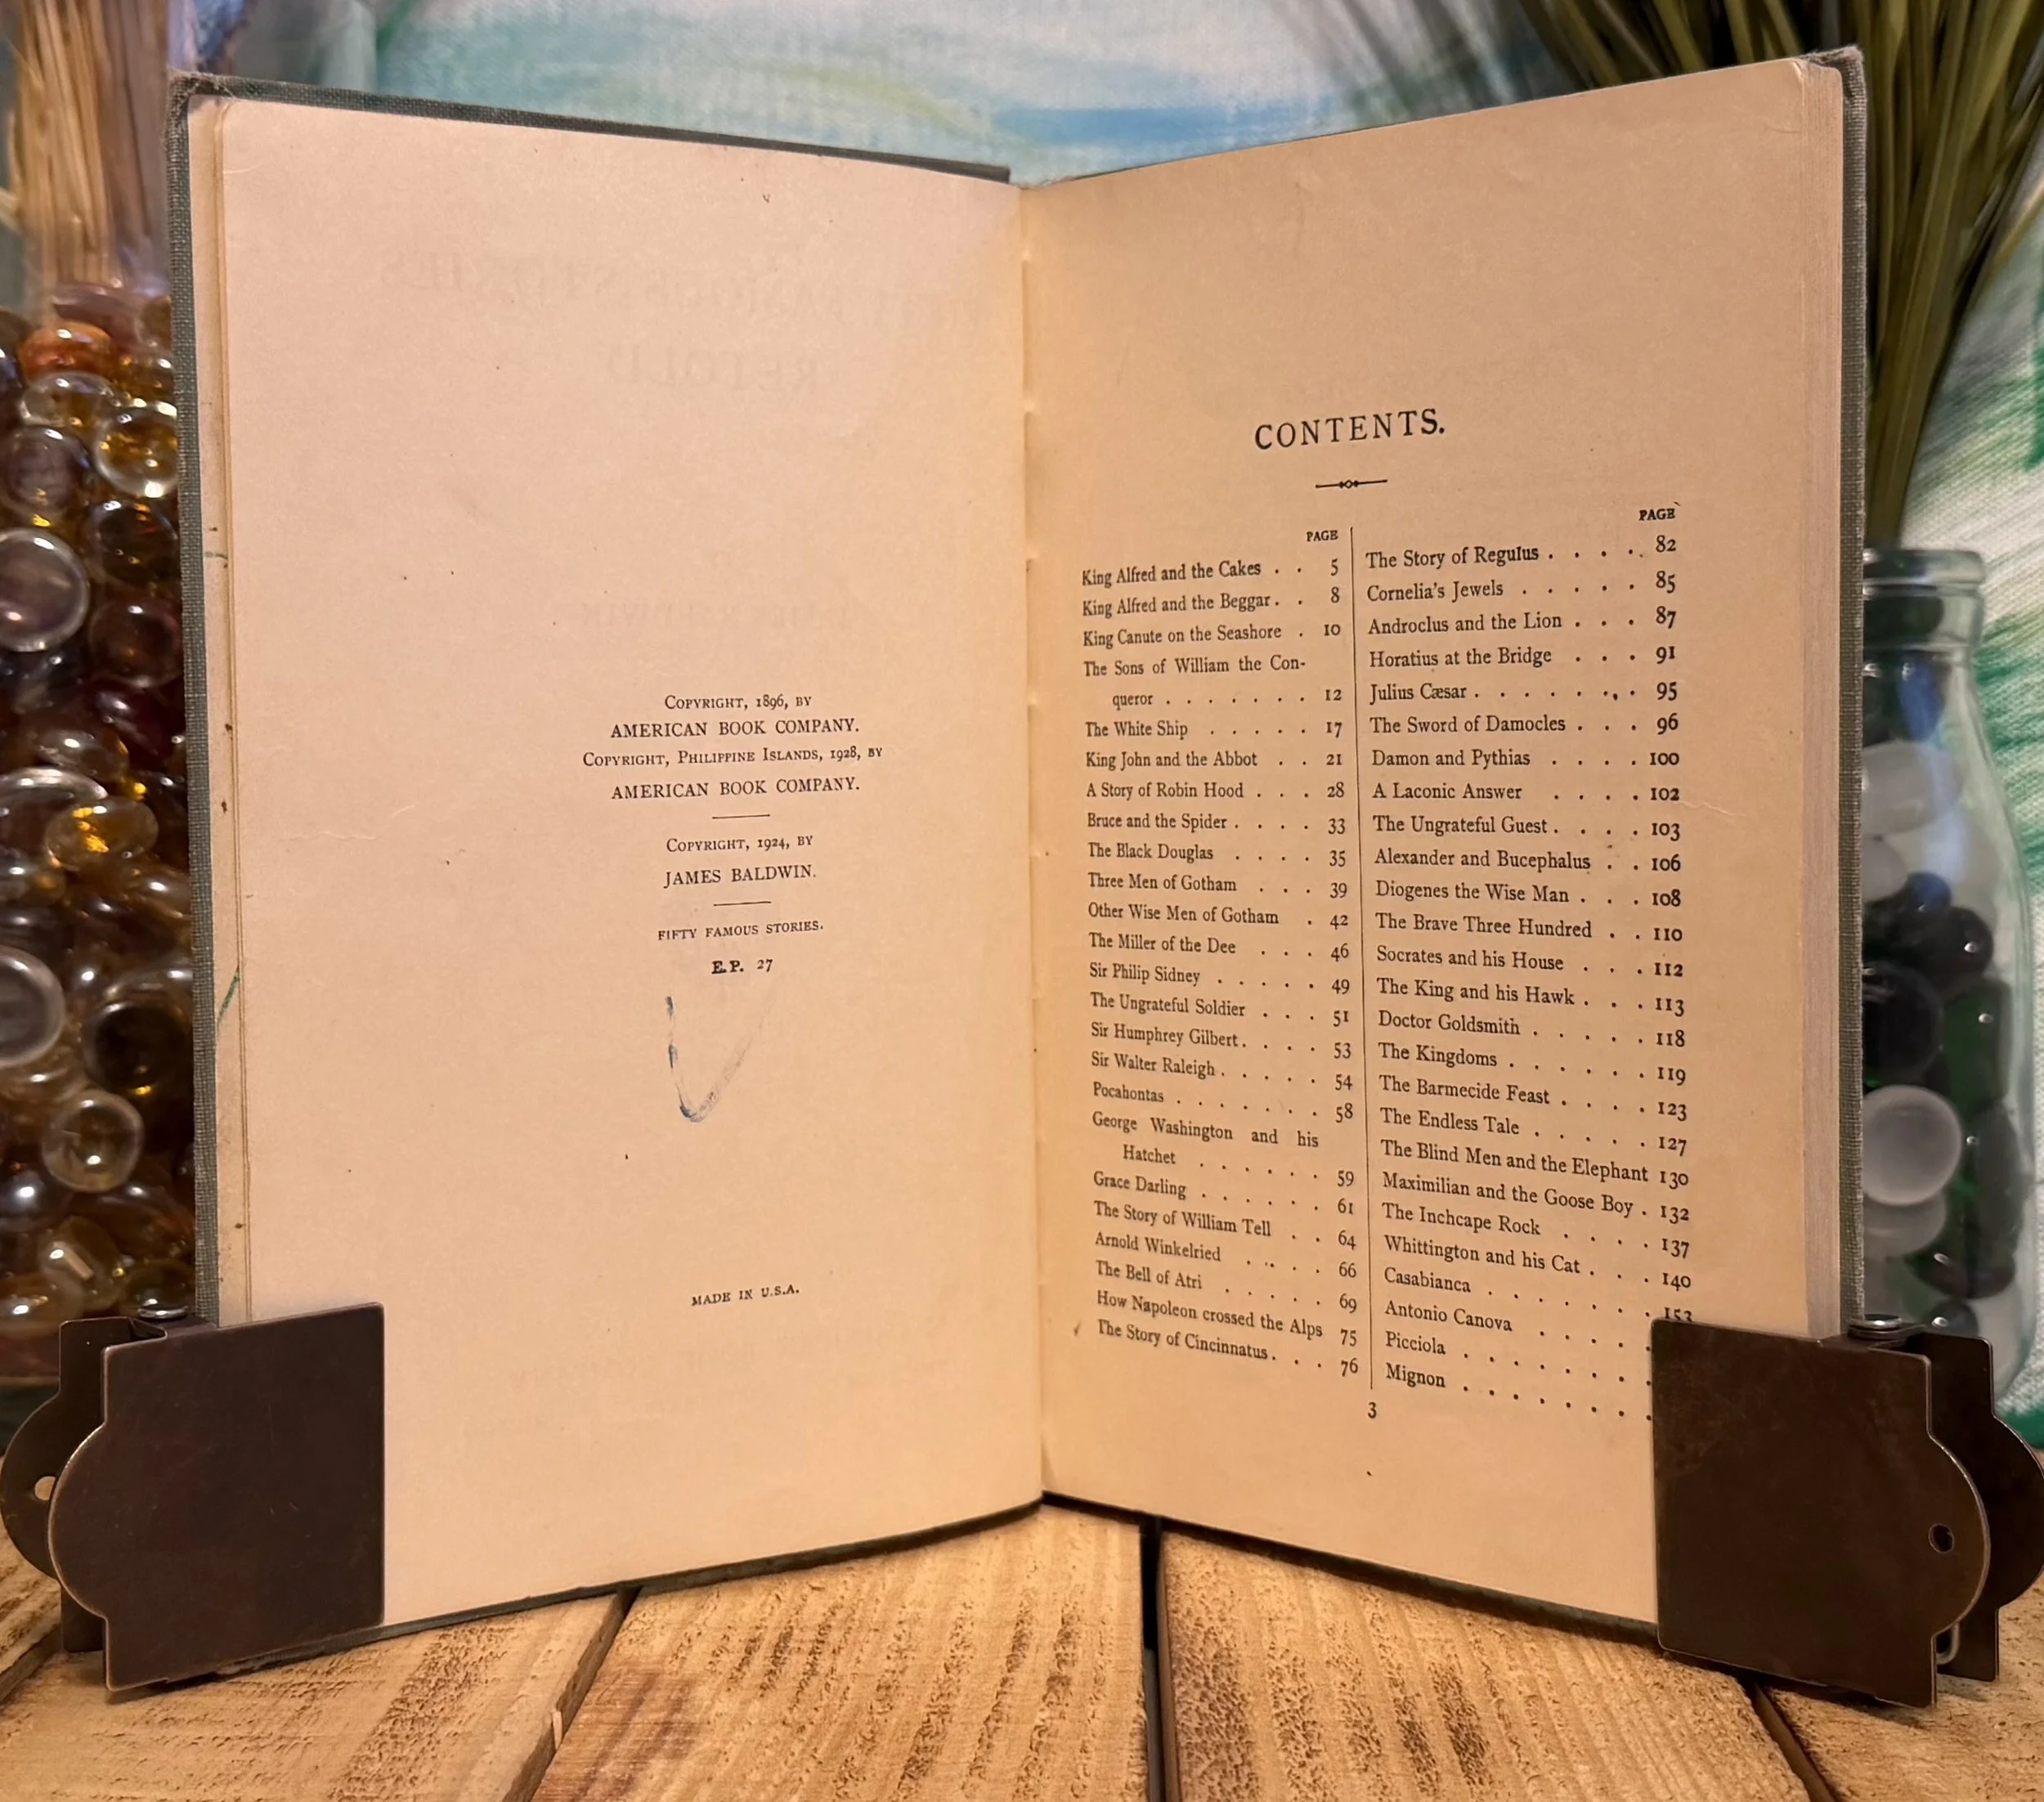 COPYRIGHT, 1896, BY
AMERICAN BOOK COMPANY.
COPYRIGHT, PHILIPPINE ISLANDS, 1928, BY
AMERICAN BOOK COMPANY.
COPYRIGHT, 1924, BY
JAMES BALDWIN.
FIFTY FAMOUS STORIES.
E.P. 27
MADE IN U.S.A.
CONTENTS.
PAGE
King Alfred and the Cakes . . 5
King Alfred and the Beggar . . 8
King Canute on the Seashore . 10
The Sons of William the Con-
queror . . . . . . . 12
The White Ship . . . . . 17
King John and the Abbot . . 21
A Story of Robin Hood . . . 28
Bruce and the Spider . . . . 33
The Black Douglas . . . . 35
Three Men of Gotham . . . 39
Other Wise Men of Gotham . 42
The Miller of the Dee . . . 46
Sir Philip Sidney . . . . . 49
The Ungrateful Soldier . . . 51
Sir Humphrey Gilbert . . . . 53
Sir Walter Raleigh . . . . . 54
Pocahontas . . . . . . . 58
George Washington and his
Hatchet . . . . . . 59
Grace Darling . . . . . . 61
The Story of William Tell . . 64
Arnold Winkelried . . . . 66
The Bell of Atri . . . . . 69
How Napoleon crossed the Alps 75
The Story of Cincinnatus . . . 76
PAGE
The Story of Regulus . . . . 82
Cornelia's Jewels . . . . . 85
Androclus and the Lion . . . 87
Horatius at the Bridge . . . 91
Julius Cæsar . . . . . . . 95
The Sword of Damocles . . . 96
Damon and Pythias . . . . 100
A Laconic Answer . . . . 102
The Ungrateful Guest . . . . 103
Alexander and Bucephalus . . 106
Diogenes the Wise Man . . . 108
The Brave Three Hundred . . 110
Socrates and his House . . . 112
The King and his Hawk . . . 113
Doctor Goldsmith . . . . . 118
The Kingdoms . . . . . . 119
The Barmecide Feast . . . . 123
The Endless Tale . . . . . 127
The Blind Men and the Elephant 130
Maximilian and the Goose Boy . 132
The Inchcape Rock . . . . 137
Whittington and his Cat . . . 140
Casabianca . . . . . . . 153
Antonio Canova . . . . .
Picciola . . . . . . .
Mignon . . . . . . .
3